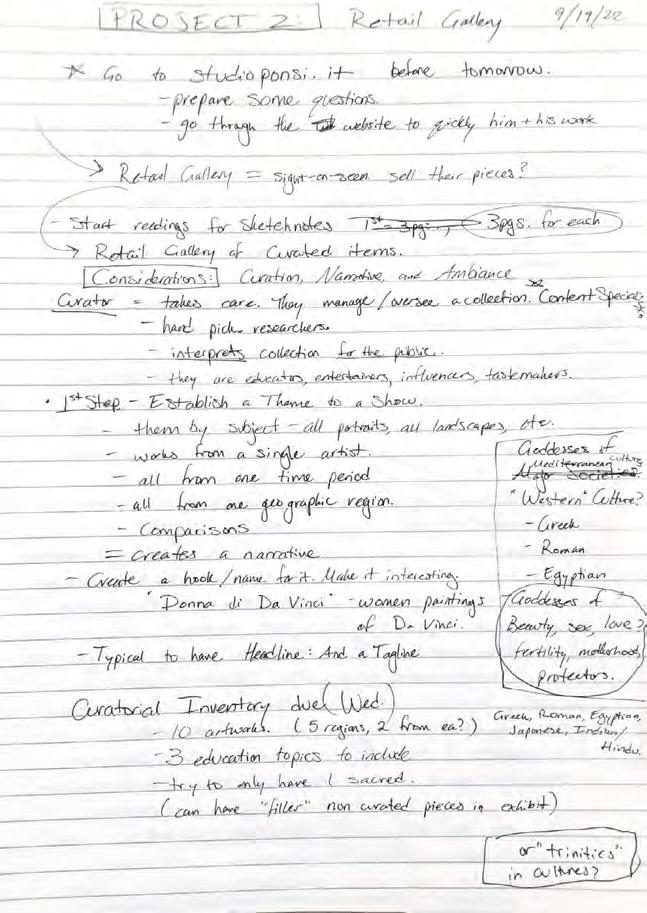 PROJECT 2: Retail Gallery 9/19/22
* Go to studioponsi.it before tomorrow.
- prepare some questions.
- go through the website to quickly him + his work
Retail Gallery = sight-on-seen sell their pieces?
- Start readings for sketchnotes 1st = 3pg., 3pgs. for each
Retail Gallery of Curated items.
Considerations: Curation, Narrative, and Ambiance
Curator = takes care. They manage/oversee a collection. Content Specialists.
- hand pick. researchers.
- interprets collection for the public.
- they are educators, entertainers, influencers, tastemakers.
• 1st Step - Establish a Theme to a Show.
- them by subject - all portraits, all landscapes, etc.
- works from a single artist.
- all from one time period
- all from one geographic region.
- Comparisons
= creates a narrative
- Create a hook/name for it. Make it interesting.
"Donna di Da Vinci" - women paintings
of Da Vinci.
- Typical to have Headline: And a Tagline
Goddesses of
Mediterranean culture
Major Societies.
"Western" Culture?
- Greek
- Roman
- Egyptian
Goddesses of
Beauty, sex, love?
fertility, motherhood,
protectors.
Curatorial Inventory due (Wed.)
- 10 artworks. (5 regions, 2 from ea?)
- 3 education topics to include
- try to only have 1 sacred.
(can have "filler" non curated pieces in exhibit)
Greek, Roman, Egyptian,
Japanese, Indian/
Hindu.
or "trinities"
in cultures?